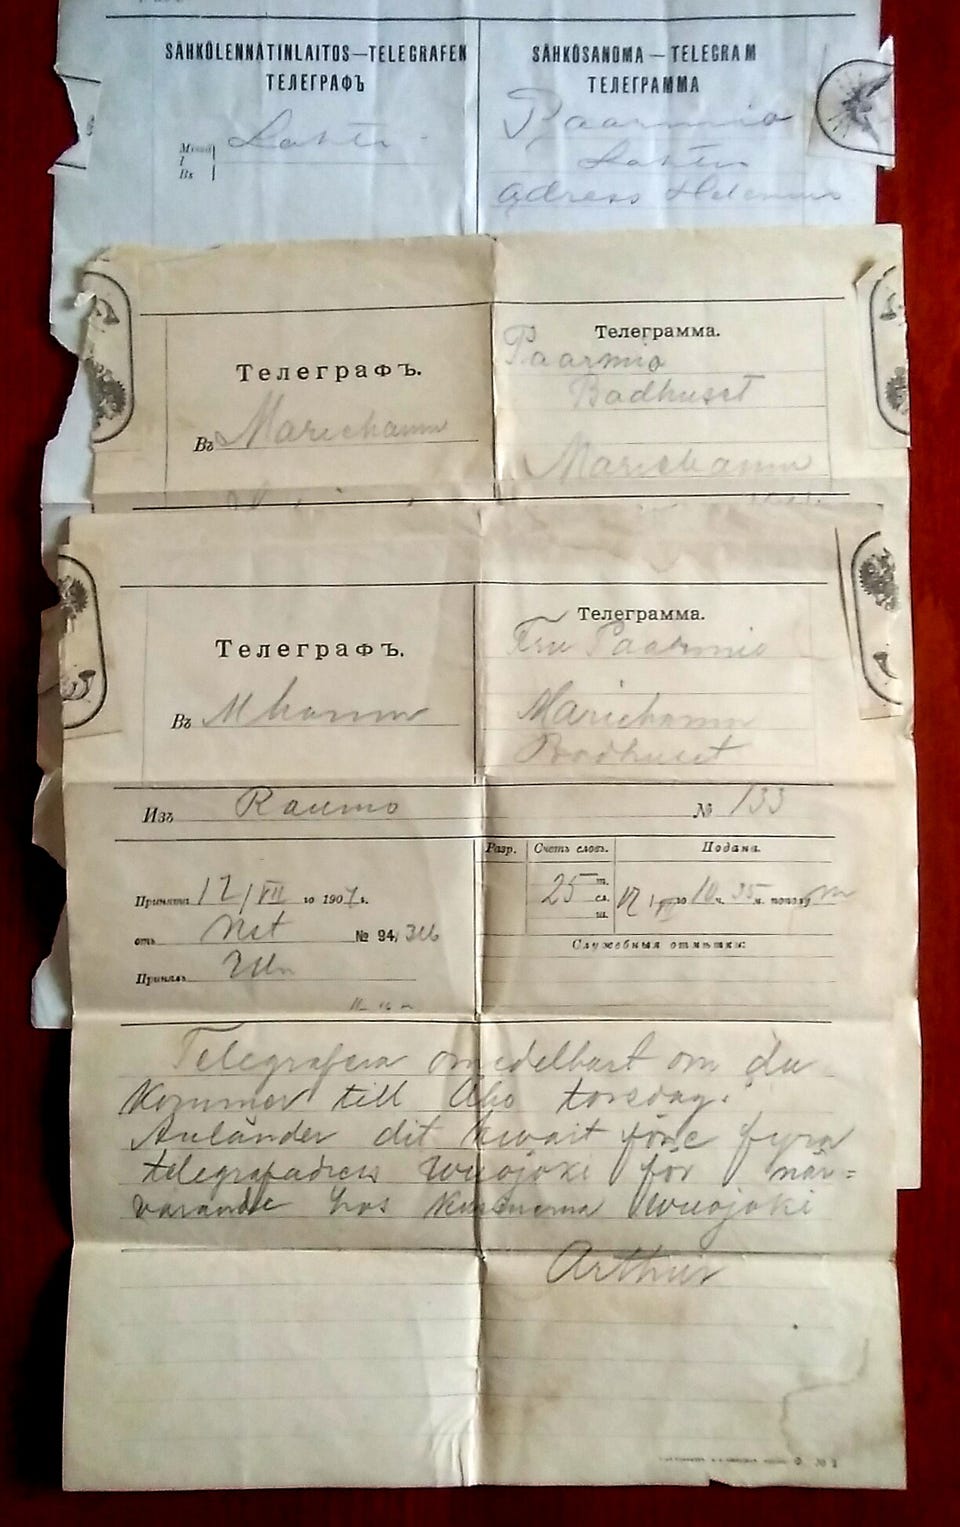 SÄHKÖLENNÄTINLAITOS—TELEGRAFEN
ТЕЛЕГРАФЪ
Lahti
SÄHKÖSANOMA — TELEGRAM
ТЕЛЕГРАММА
Paarmio
Lahtis
adress
Телеграфъ.
Въ Mariehamn
Телеграмма.
Paarmio
Badhuset
Mariehamn
Телеграфъ.
Въ Mhamn
Телеграмма.
Fru Paarmio
Mariehamn
Badhuset
Изъ Raumo № 133
Принята 17/VII го 1907 г.
отъ Nst № 94/
Принялъ
Разр. Счетъ словъ. Подана.
25 сл.
17 го 10 ч. 35 м. пополу m
Служебныя отмѣтки:
Telegrafera omedelbart om du
kommer till Åbo torsdag.
Anländer dit kvart före fyra
telegrafadress Wuojoki för när=
varande hos Wuojoki
Arthur